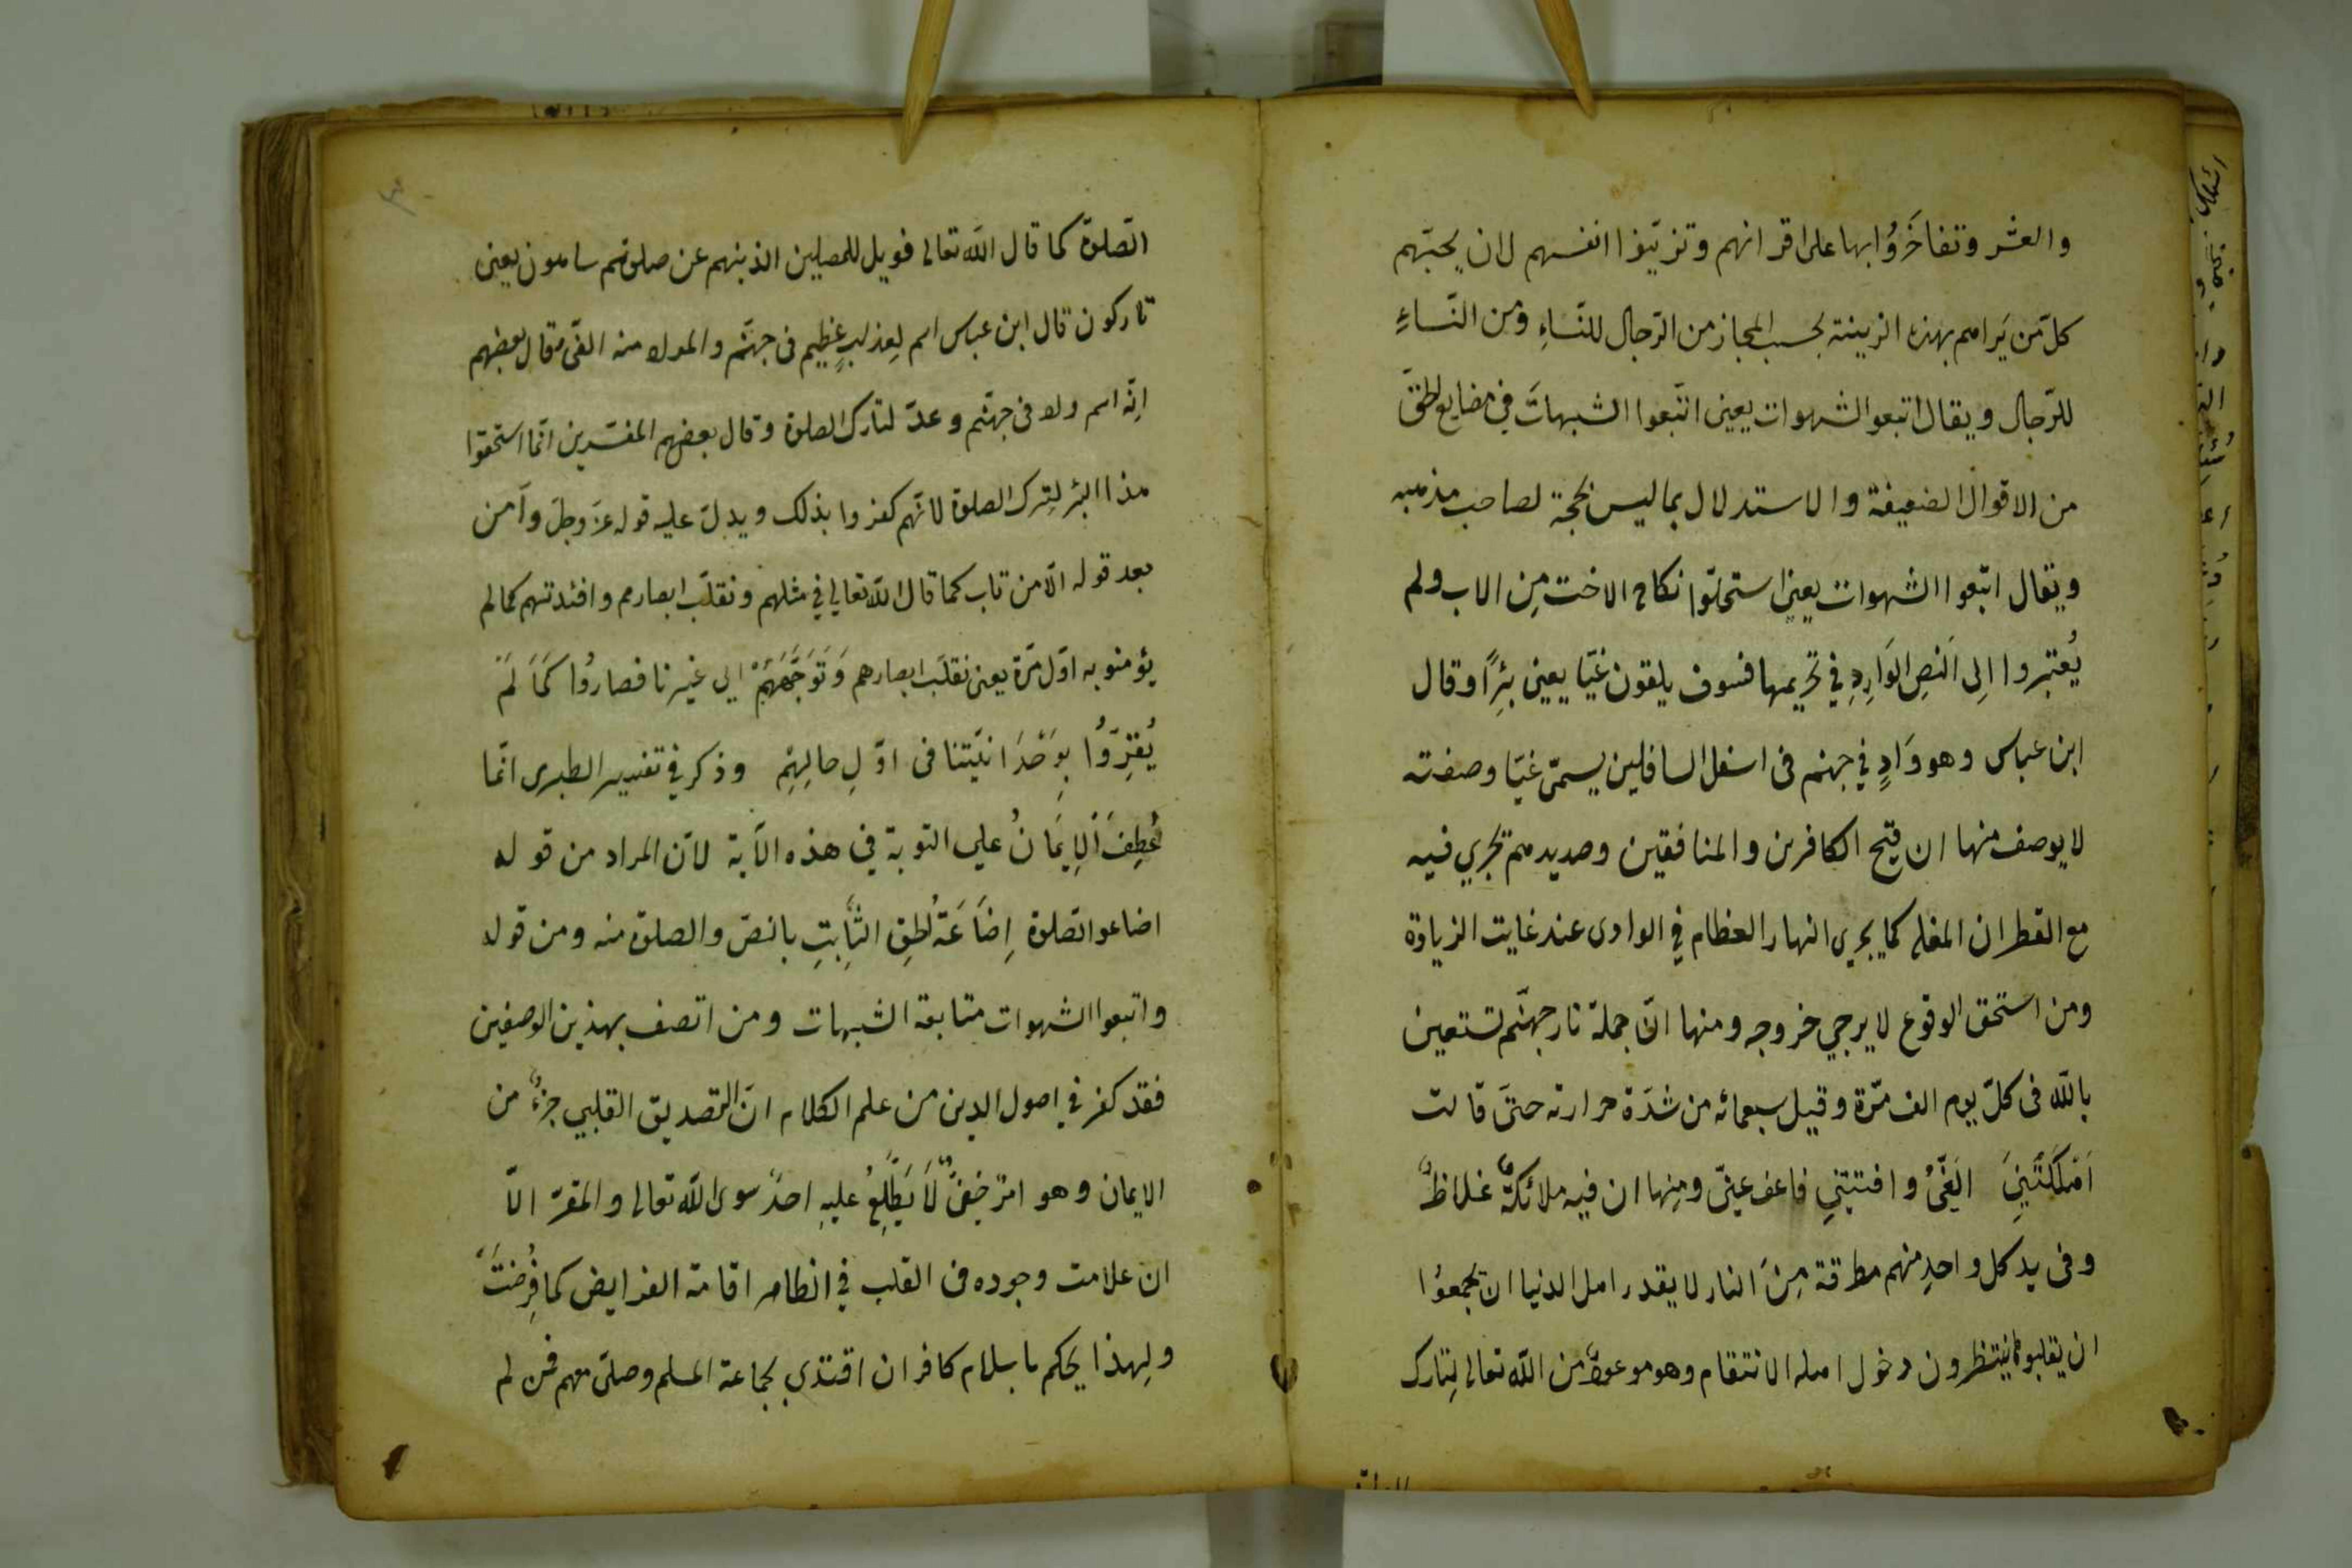 والعشر وتفاخَرُوُا بها على اقرانهم وتزيّنوا انفسهم لان يحبّهم
كلّ من يَراهم بهذه الزينة بحسب المجاز من الرّجال للنّساءِ ومن النّساءِ
للرّجال ويقال اتبعو الشهوات يعينى اتّبعوا الشبهاتَ في
من الاقوال الضعيفة والاستدلال بماليس بحجة لصاحب مذهبه
ويقال اتبّعوا الشهوات يعينى استحلّوا نكاح الاخت مِن الاب ولم
يُعتبروا اِلى النصِ الوَارِدِ في تحريمها فسوف يلقون غيّا يعينى بئِراً وقال
ابن عباس وهو وَادٍ في جهنم فى اسفل السافلين يسمىّ غيّا وصفته
لا يوصف منها ان قيح الكافرين والمنافقين وصديدهم تجري فيه
مع القطران المغلى كما يجرى النهار العظام في الوادى عند غايت الزيادة
ومن استحق الوقوع لا يرجي خروجه ومنها انّ جملة نار جهنّم تستعين
باللّه فى كلّ يوم الف مّرة وقيل سبعمائه من شدّة حرارته حتىّ قالت
اَهْلَكَتْنِيَ الَغَّىُ وافتنتنىِ فاعف عنىّ ومنها ان فيه ملائكةٌ غلاظٌ
وفى يد كل واحدٍ منهم مطرقة مِنَ النار لا يقدر اهل الدنيا ان يجمعوُا
ان يقلبو ينتظرون دخول اهله الانتقام وهو موعودٌ من اللّه تعالى لِتارك
الصّلوة كما قال اللّه تعالى فويل للمصلين الذينهم عن صلوتهم ساهون يعينى
تاركون قال ابن عباس اسم لِعذابٍ عظيم فى جهنّم والمراد منه الغىّ وقال بعضهم
انِّه اسم واد فى جهنّم وعدّ لتارك الصلوة وقال بعضهم المفسّرين انّما استحقوا
هذا البئر لِترك الصلوة لانّهم كفروا بذلك ويدلّ عليه قوله عزّ وجلّ وآمن
بعد قوله الّا من تاب كما قال اللّه تعالي في مثلهم ونقلّب ابصارهم وافئدتهم كمالم
يؤمنو به اوّل مّرة يعنى نقلّب ابصارهم وَتَوَجَّهَهُمْ الي غيرنا فصارُوا كَمَا لَمْ
يُقِرّوُا بِوَحْدَانيّتنا فى اوّلِ حالِهِمِ وذكر في تفسير الطبرى انّما
عُطِفَ اْلِايَمانُ علي التوبة في هذه الآية لانّ المراد من قوله
اضاعو الصّلوة اِضَاعَةُ الثَّابِتِ بالنصّ والصلوة منه ومن قوله
واتبعوا الشهوات متابعة الشبهات ومن اتصف بهذين الوصفين
فقد كفر في اصول الدين من علم الكلام انّ التصديق القلبي جزءٌ من
الايمان وهو امرٌ خفىٌّ لَا يَطَّلِعُ عليهِ احدٌ سوى اللّه تعالى والمقرّ الّا
ان علامت وجوده فى القلب في اقامة الفرايض كما فُرِضَتْ
ولِهذا يحكم باسلام كافر ان اقتدي بجماعة المسلم وصلّى معهم فمن لم